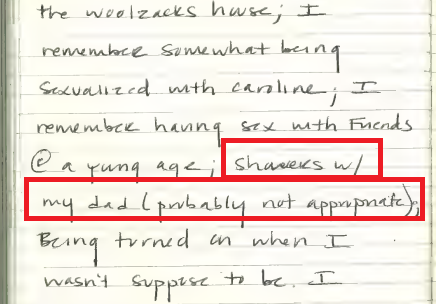 the woolzacks house; I
remember somewhat being
sexualized with caroline; I
remember having sex with Friends
@ a young age; showers w/
my dad (probably not appropriate);
Being turned on when I
wasn't suppose to be. I